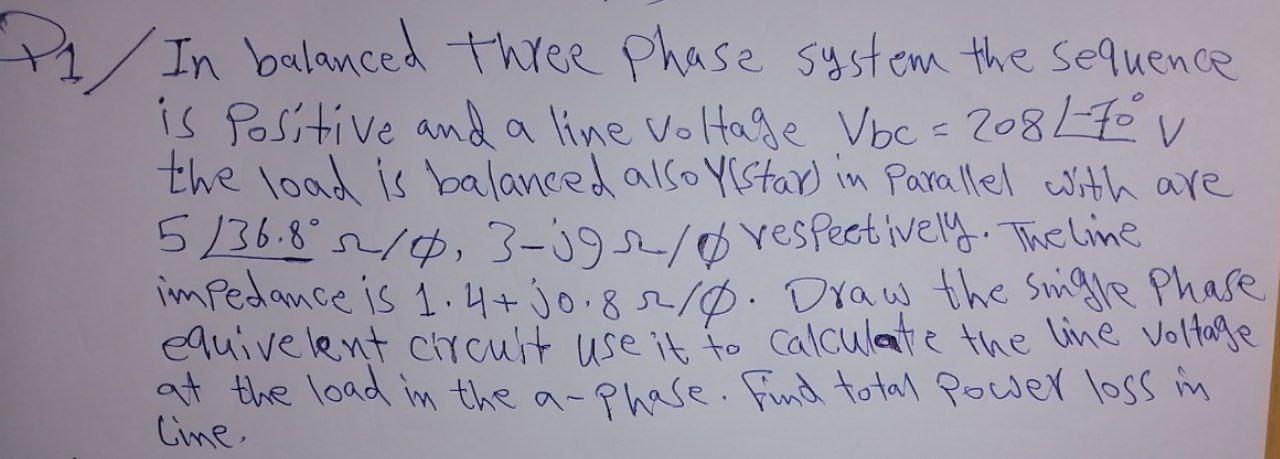 P1/ In balanced three Phase system the sequence
is Positive and a line voltage Vbc = 208∠-70° V
the load is balanced also Y(star) in Parallel with are
5∠36.8° Ω/φ, 3-j9 Ω/φ respectively. The line
impedance is 1.4+j0.8 Ω/φ. Draw the single Phase
equivelent circuit use it to calculate the line voltage
at the load in the a-phase. Find total Power loss in
line.